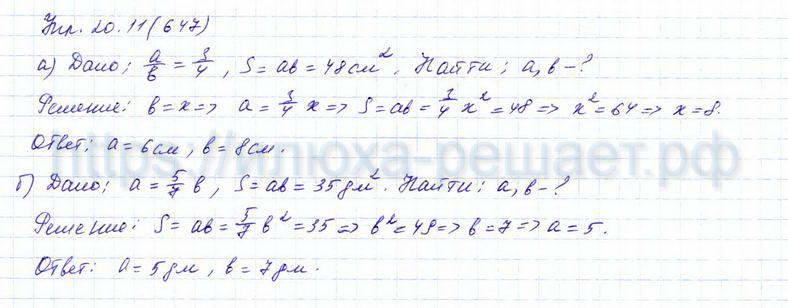 Упр. 20.11(647)
а) Дано: a/b = 3/4, S = ab = 48 см². Найти: a, b – ?
Решение: b = x => a = 3/4 x => S = ab = 3/4 x² = 48 => x² = 64 => x = 8.
Ответ: a = 6 см, b = 8 см.
https://илюха-решает.рф
б) Дано: a = 5/7 b, S = ab = 35 дм². Найти: a, b – ?
Решение: S = ab = 5/7 b² = 35 => b² = 49 => b = 7 => a = 5.
Ответ: a = 5 дм, b = 7 дм.